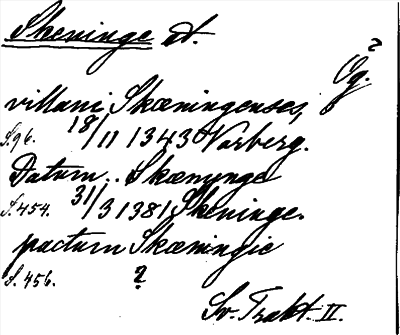 Skeninge st.
Ög. ?
villani Skæningenses,
S.96. 18/11 1343 Varberg.
Datum .. Skænynge
S.454. 31/3 1381 Skeninge.
pactum Skæningie
S.456. ?
Sv. Trakt. II.